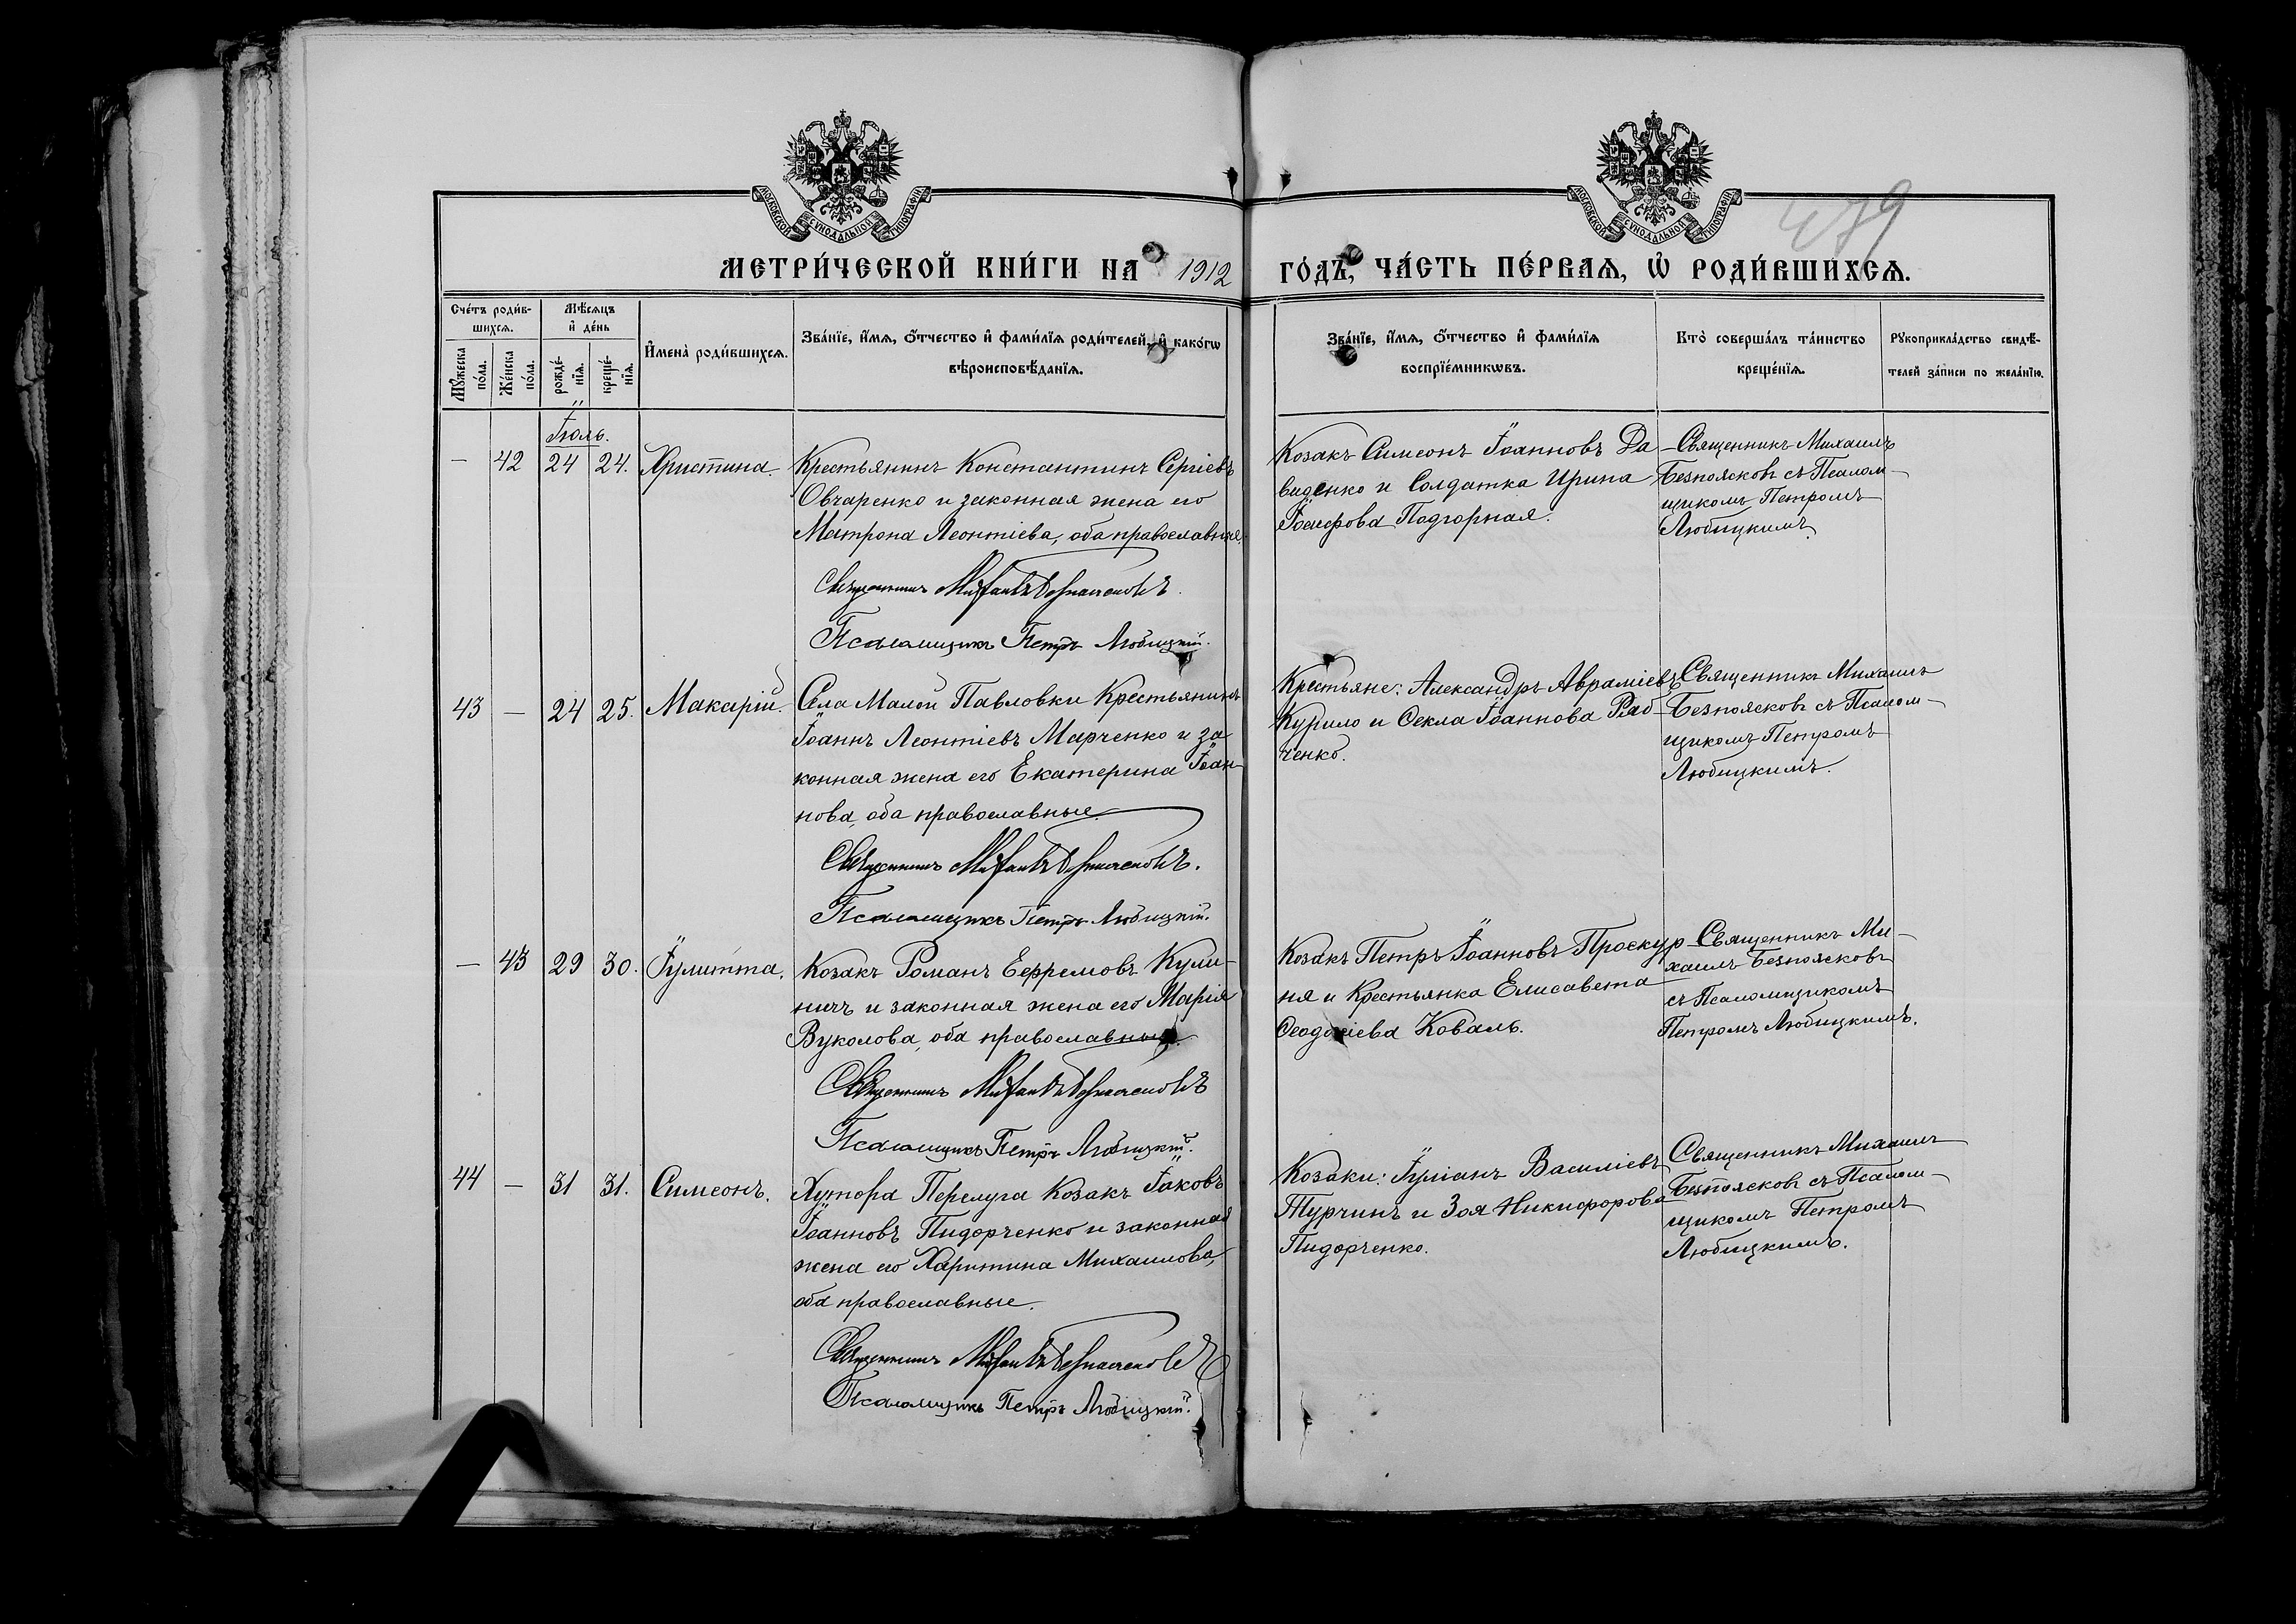 МОСКОВСКОЙ СѴНОДАЛЬНОЙ ТИПОГРАФІИ
МОСКОВСКОЙ СѴНОДАЛЬНОЙ ТИПОГРАФІИ
479
МЕТРИ́ЧЕСКОЙ КНИ́ГИ НА 1912 ГО́ДЪ, ЧА́СТЬ ПЕ́РВАѦ, Ѡ҆ РОДИ́ВШИХСѦ.
Сче́тъ роди́в-
шихсѧ.
Мꙋ́жеска по́ла.
Же́нска по́ла.
Мѣ́сѧцъ
и҆ де́нь
рожде́-
нїѧ.
креще́-
нїѧ.
И҆мена̀ роди́вшихсѧ.
Зва́нїе, и҆́мѧ, ѻ҆́тчество и҆ фами́лїѧ роди́телей, и҆ како́гѡ
вѣроисповѣ́данїѧ.
Зва́нїе, и҆́мѧ, ѻ҆́тчество и҆ фами́лїѧ
воспрїе́мникѡвъ.
Кто̀ соверша́лъ та́инство
креще́нїѧ.
Рꙋкоприкла́дство свидѣ́-
телей за́писи по жела́нїю.
Іюль.
— 42 24 24. Христина.
Крестьянинъ Константинъ Сергіевъ
Овчаренко и законная жена его
Матрона Леонтіева, оба православные.
Священникъ Михаилъ Безпоясковъ.
Псаломщикъ Петръ Любицкій.
Козакъ Симеонъ Іоанновъ Да-
виденко и Солдатка Ирина
Іосифова Подгорная.
Священникъ Михаилъ
Безпоясковъ съ Псалом-
щикомъ Петромъ
Любицкимъ.
43 — 24 25. Макарій.
Села Малой Павловки Крестьянинъ
Іоаннъ Леонтіевъ Марченко и за
конная жена его Екатерина Іоан-
нова, оба православные.
Священникъ Михаилъ Безпоясковъ.
Псаломщикъ Петръ Любицкій.
Крестьяне: Александръ Авраміевъ
Курило и Ѳекла Іоаннова Ряб-
ченко.
Священникъ Михаилъ
Безпоясковъ съ Псалом-
щикомъ Петромъ
Любицкимъ.
— 43 29 30. Іулитта.
Козакъ Романъ Ефремовъ Кули-
ничъ и законная жена его Марія
Вуколова, оба православные.
Священникъ Михаилъ Безпоясковъ
Псаломщикъ Петръ Любицкій.
Козакъ Петръ Іоанновъ Проскур-
ня и Крестьянка Елисавета
Ѳеодосіева Коваль.
Священникъ Ми-
хаилъ Безпоясковъ
съ Псаломщикомъ
Петромъ Любицкимъ.
44 — 31 31. Симеонъ.
Хутора Перелуга Козакъ Іаковъ
Іоанновъ Пидорченко и законная
жена его Харитина Михаилова,
оба православные.
Священникъ Михаилъ Безпоясковъ
Псаломщикъ Петръ Любицкій.
Козаки: Іуліанъ Василіевъ
Турчинъ и Зоя Никифорова
Пидорченко.
Священникъ Михаилъ
Безпоясковъ съ Псалом-
щикомъ Петромъ
Любицкимъ.